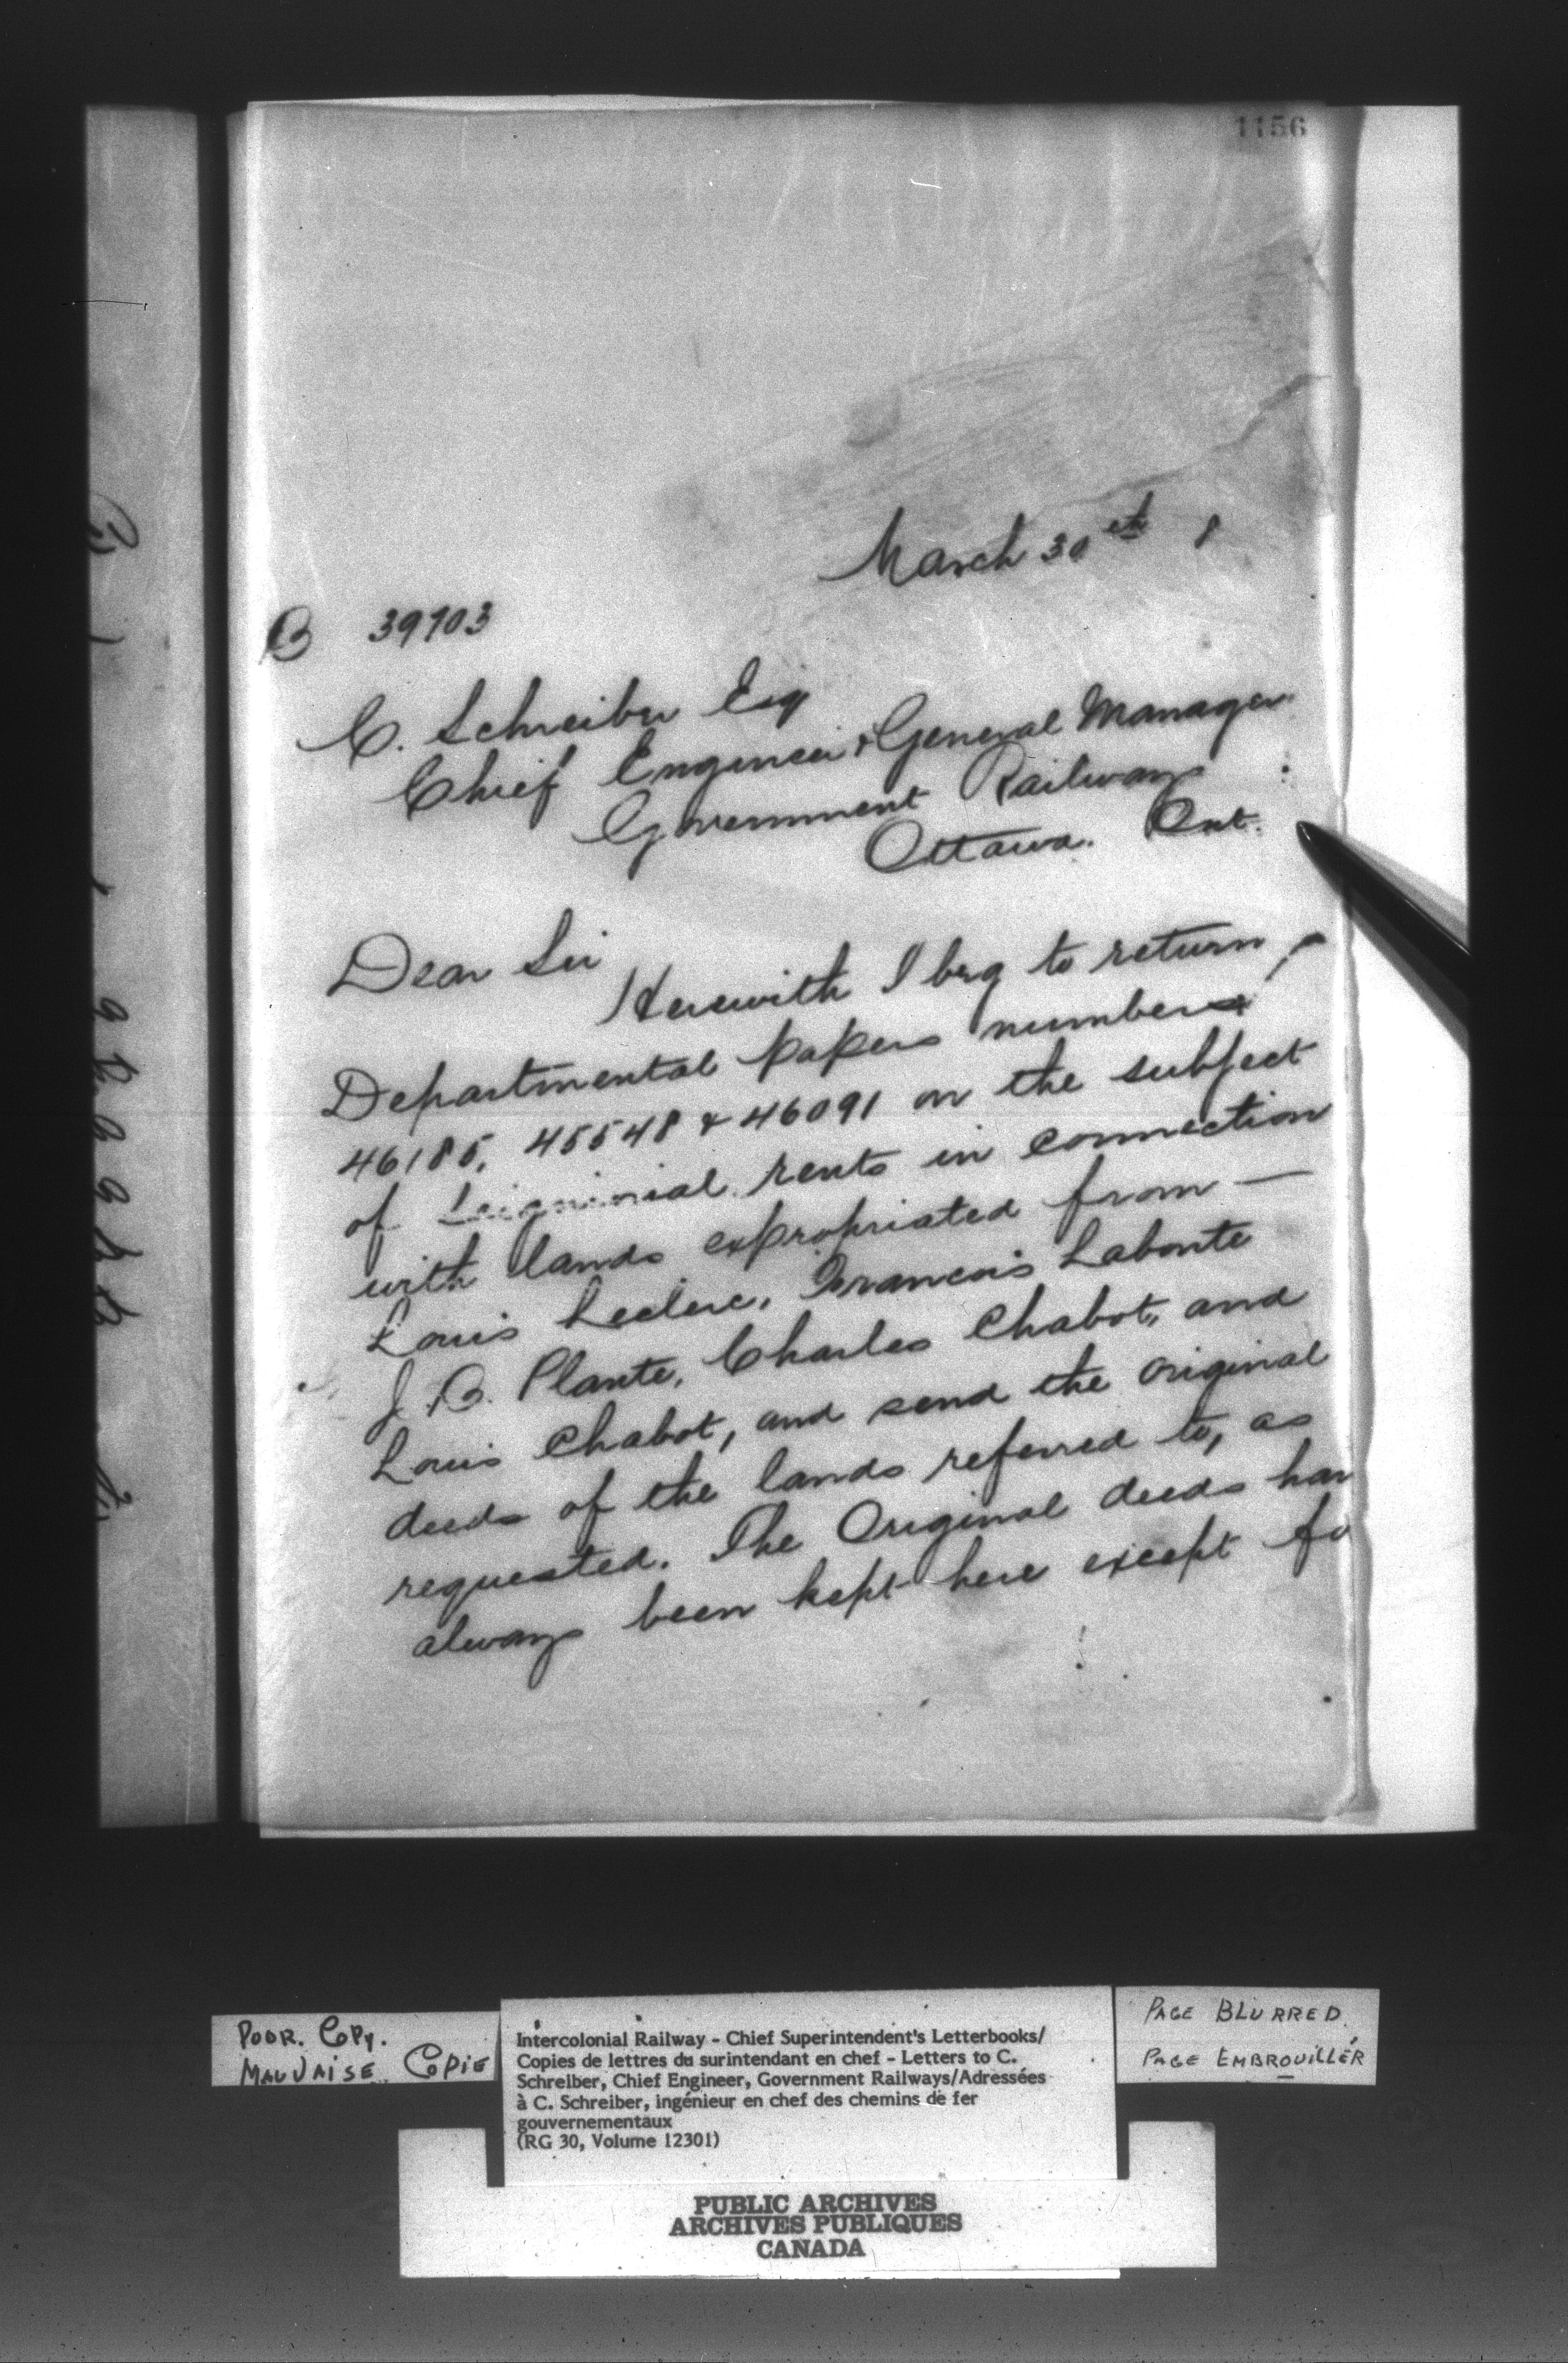 1156
March 30th 8
B 39703
C. Schreiber Esq
Chief Engineer & General Manager
Government Railways
Ottawa. Ont.
Dear Sir
Herewith I beg to return
Departmental papers numbers
46185, 45548 & 46091 on the subject
of Seigniorial rents in connection
with lands expropriated from —
Louis Leclerc, Francois Labonte
J. B. Plante, Charles Chabot, and
Louis Chabot, and send the original
deeds of the lands referred to, as
requested. The Original deeds hav
always been kept here except fo
POOR. COPY.
MAUVAISE COPIE
Intercolonial Railway - Chief Superintendent's Letterbooks/
Copies de lettres du surintendant en chef - Letters to C.
Schreiber, Chief Engineer, Government Railways/Adressées
à C. Schreiber, ingénieur en chef des chemins de fer
gouvernementaux
(RG 30, Volume 12301)
PAGE BLURRED.
PAGE EMBROUILLÉR
PUBLIC ARCHIVES
ARCHIVES PUBLIQUES
CANADA